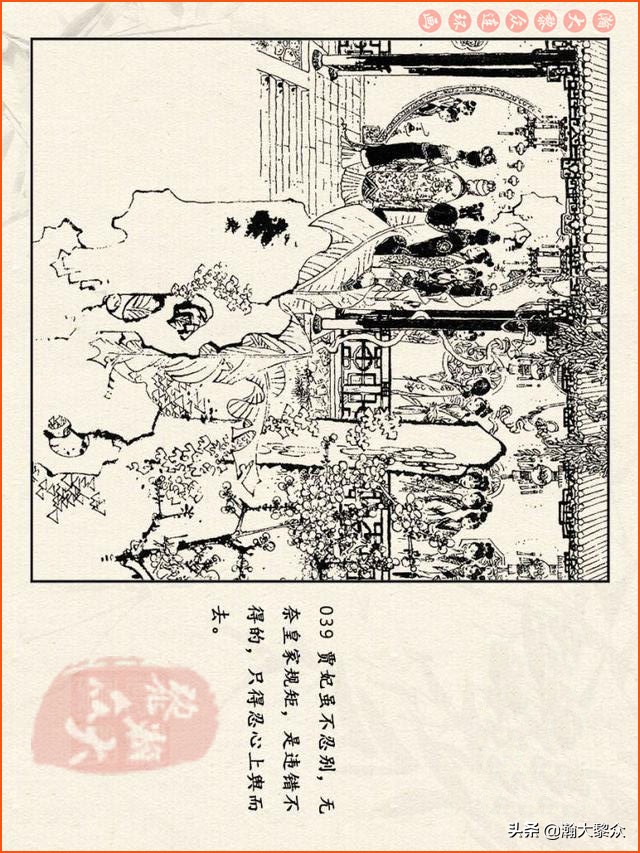 瀚大黎众连环画
039 贾妃虽不忍别，无
奈皇家规矩，是违错不
得的，只得忍心上舆而
去。
瀚大
黎众
头条 @瀚大黎众